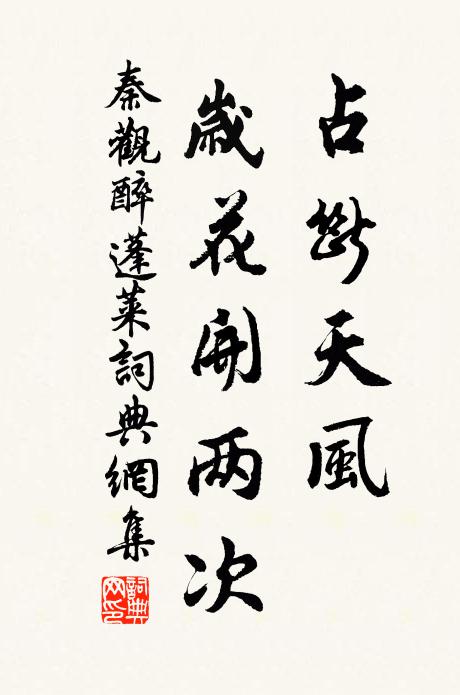 占斷天風
歲花開兩次
秦觀醉蓬萊詞典網集
詞典網印